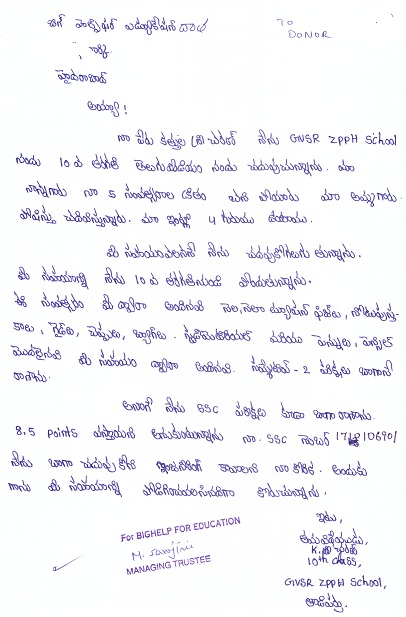 బిగ్ హెల్ప్ ఫర్ ఎడ్యుకేషన్ దాత
TO
DONOR
హైదరాబాద్
అయ్యా!
నా పేరు శ్రీ చరణ్ నేను GVSR ZPPH School
నందు 10 వ తరగతి తెలుగుమీడియం నందు చదువుచున్నాను. మా
నాన్నగారు నా 5 సంవత్సరాల క్రితం చని పోయారు మా అమ్మగారు
పోషిస్తు చదివిస్తున్నారు. మా ఇంట్లో 4 గురము ఉంటాము.
మీ సహాయంవలననే నేను చదువుకోగలుగు తున్నాను.
మీ సహాయాన్ని నేను 10 వ తరగతినుండి పొందుతున్నాను.
ఈ సంవత్సరం మీ ద్వారా అందినవి నెల, నెలా ట్యూషన్ ఫీజులు, నోటుపుస్త-
కాలు, గైడ్లు, చెప్పులు, బ్యాగ్‌లు. మరియు పెన్నులు, పెన్సిల్
మొదలైనవి మీ సహాయం ద్వారా అందినవి. సమ్మేటివ్ - 2 పరీక్షలు బాగానే
రాశాను.
అలాగే నేను SSC పరీక్షలు కూడా బాగా రాశాను.
8.5 points వస్తాయని అనుకుంటున్నాను నా SSC నెంబర్
నేను బాగా చదువు కోని ఇంజనీరింగ్ కావాలని నా కోరిక. అందుకు
గాను మీ సహాయాన్ని కోరుచున్నాను.
ఇట్లు,
తమ విధేయుడు,
K. శ్రీ చరణ్
10th class,
GVSR ZPPH School,
For BIGHELP FOR EDUCATION
MANAGING TRUSTEE